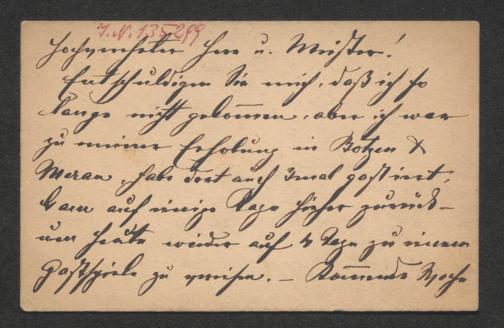 I. N. 135299
Hochverehrter Herr u. Meister!
Entschuldigen Sie mich, daß ich so
lange nicht gekommen, aber ich war
zu meiner Erholung in Botzen &
Meran, habe dort auch 3mal gastiert,
kam auf einige Tage hieher zurück –
um heute wieder auf 4 Tage zu einem
Gastspiele zu verreisen. – Kommende Woche